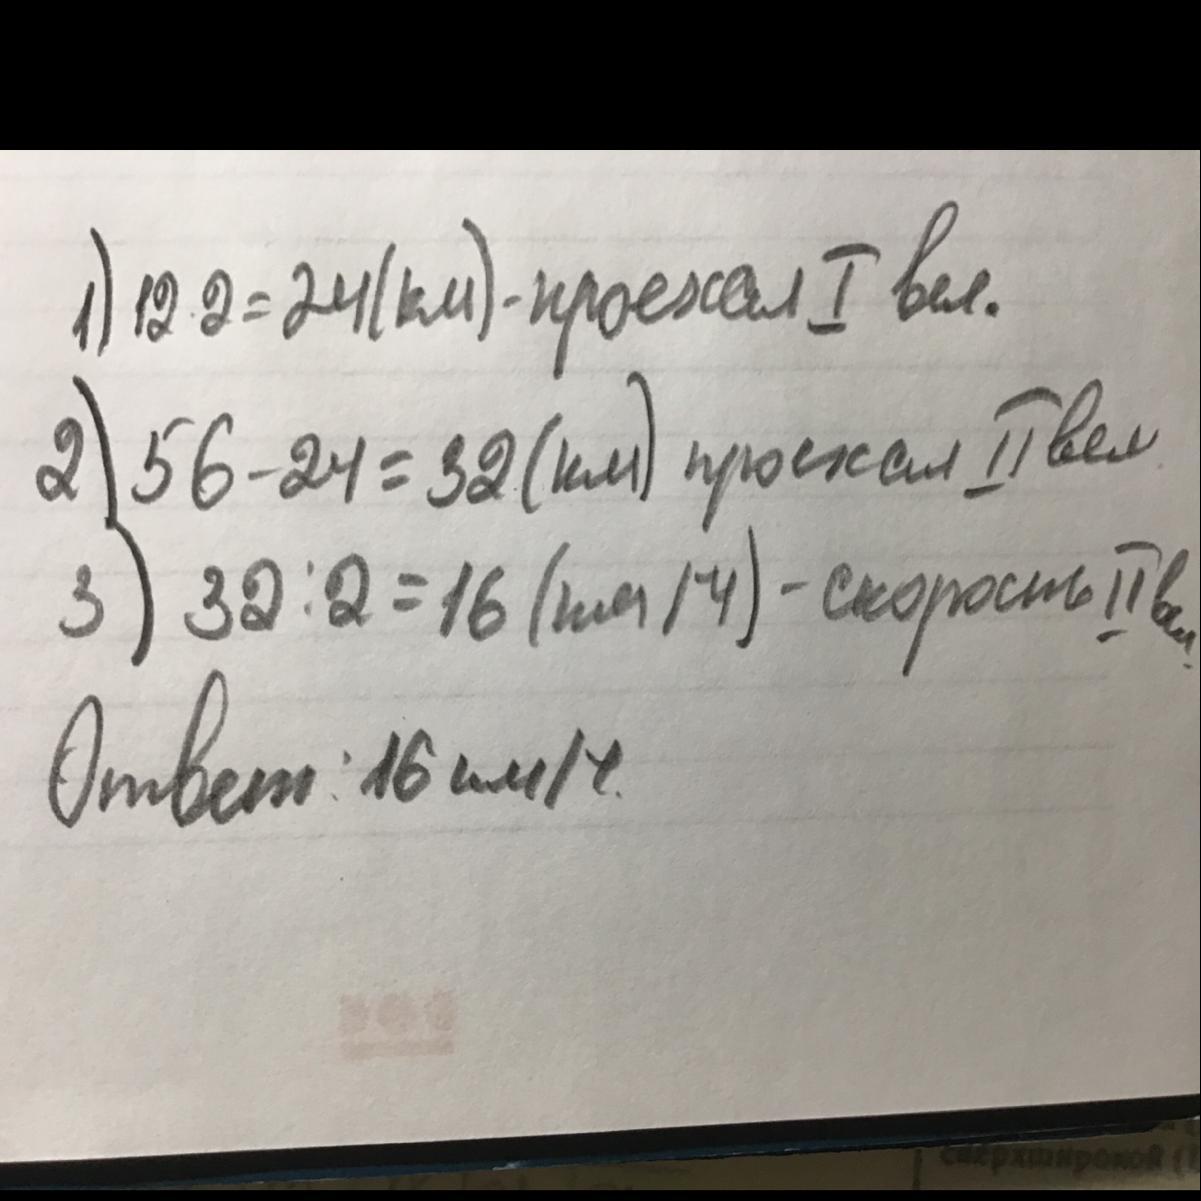 1) 12·2=24(км)-проехал I вел.
2) 56-24=32(км) проехал II вел
3) 32:2=16(км/ч)-скорость II вел.
Ответ: 16 км/ч.
сверхширокой (